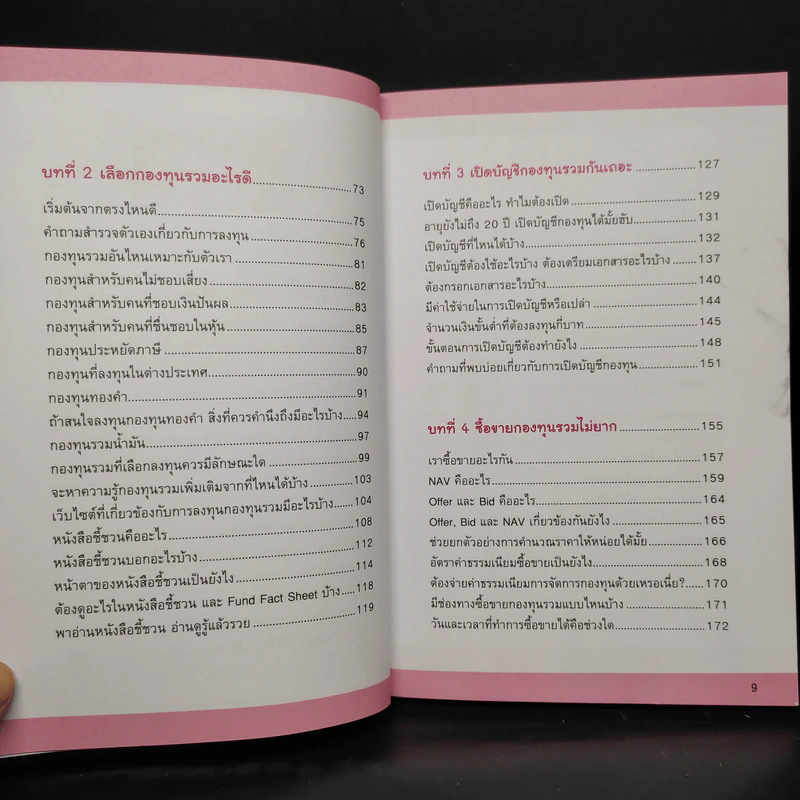 บทที่ 2 เลือกกองทุนรวมอะไรดี..........73
เริ่มต้นจากตรงไหนดี..........75
คำถามสำรวจตัวเองเกี่ยวกับการลงทุน..........76
กองทุนรวมอันไหนเหมาะกับตัวเรา..........81
กองทุนสำหรับคนไม่ชอบเสี่ยง..........82
กองทุนสำหรับคนที่ชอบเงินปันผล..........83
กองทุนสำหรับคนที่ชื่นชอบในหุ้น..........85
กองทุนประหยัดภาษี..........87
กองทุนที่ลงทุนในต่างประเทศ..........90
กองทุนทองคำ..........91
ถ้าสนใจลงทุนกองทุนทองคำ สิ่งที่ควรคำนึงถึงมีอะไรบ้าง.....94
กองทุนรวมน้ำมัน..........97
กองทุนรวมที่เลือกลงทุนควรมีลักษณะใด..........99
จะหาความรู้กองทุนรวมเพิ่มเติมจากที่ไหนได้บ้าง..........103
เว็บไซต์ที่เกี่ยวข้องกับการลงทุนกองทุนรวมมีอะไรบ้าง.....104
หนังสือชี้ชวนคืออะไร..........108
หนังสือชี้ชวนบอกอะไรบ้าง..........112
หน้าตาของหนังสือชี้ชวนเป็นยังไง..........114
ต้องดูอะไรในหนังสือชี้ชวน และ Fund Fact Sheet บ้าง.....118
พาอ่านหนังสือชี้ชวน อ่านดูรู้แล้วรวย..........119
บทที่ 3 เปิดบัญชีกองทุนรวมกันเถอะ..........127
เปิดบัญชีคืออะไร ทำไมต้องเปิด..........129
อายุยังไม่ถึง 20 ปี เปิดบัญชีกองทุนได้มั้ยฮับ..........131
เปิดบัญชีที่ไหนได้บ้าง..........132
เปิดบัญชีต้องใช้อะไรบ้าง ต้องเตรียมเอกสารอะไรบ้าง.....137
ต้องกรอกเอกสารอะไรบ้าง..........140
มีค่าใช้จ่ายในการเปิดบัญชีหรือเปล่า..........144
จำนวนเงินขั้นต่ำที่ต้องลงทุนกี่บาท..........145
ขั้นตอนการเปิดบัญชีต้องทำยังไง..........148
คำถามที่พบบ่อยเกี่ยวกับการเปิดบัญชีกองทุน..........151
บทที่ 4 ซื้อขายกองทุนรวมไม่ยาก..........155
เราซื้อขายอะไรกัน..........157
NAV คืออะไร..........159
Offer และ Bid คืออะไร..........164
Offer, Bid และ NAV เกี่ยวข้องกันยังไง..........165
ช่วยยกตัวอย่างการคำนวณราคาให้หน่อยได้มั้ย..........166
อัตราค่าธรรมเนียมซื้อขายเป็นยังไง..........168
ต้องจ่ายค่าธรรมเนียมการจัดการกองทุนด้วยเหรอเนี่ย?.....170
มีช่องทางซื้อขายกองทุนรวมแบบไหนบ้าง..........171
วันและเวลาที่ทำการซื้อขายได้คือช่วงใด..........172
9